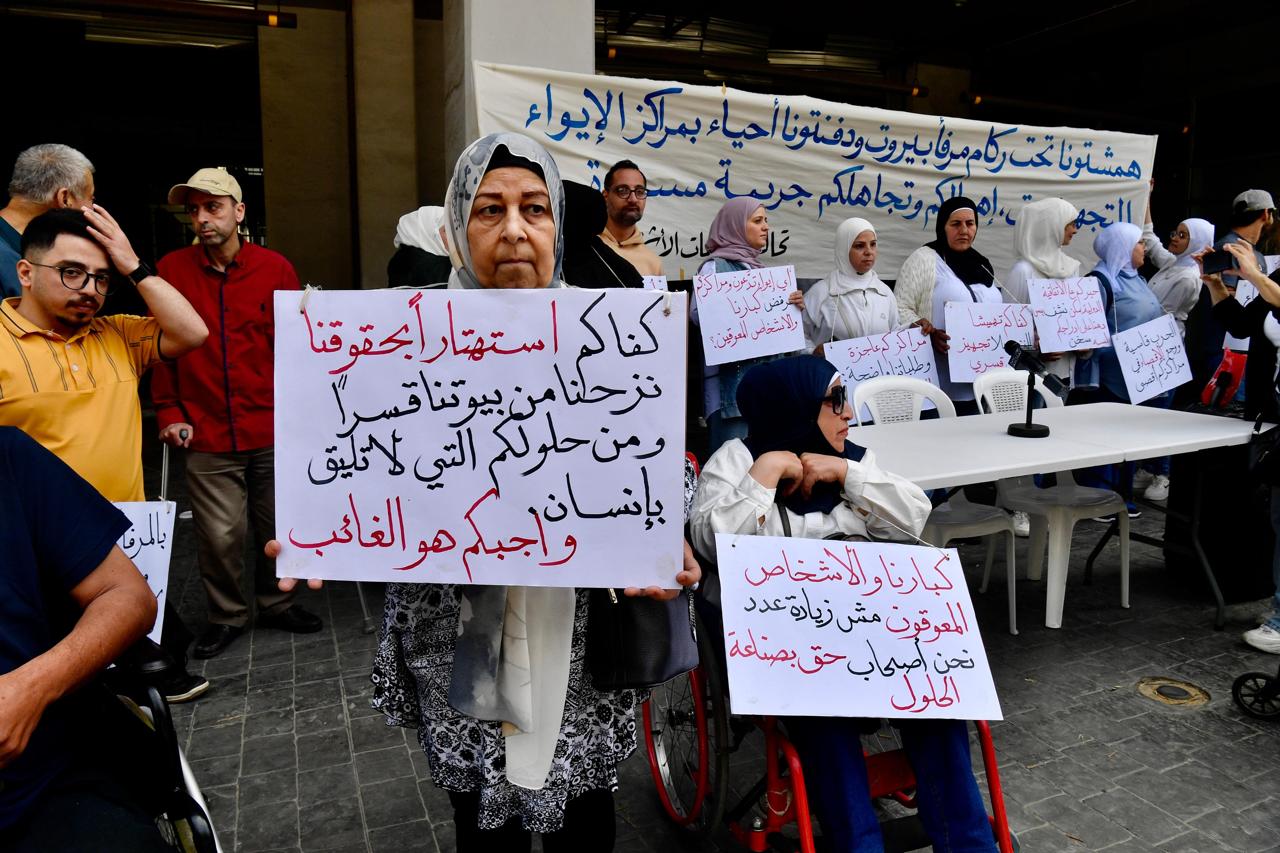 همشتونا تحت ركام مرفأ بيروت ودفنتونا أحياء بمراكز الإيواء
إهمالكم وتجاهلكم جريمة
كفاكم استهتاراً بحقوقنا
نزحلنا من بيوتنا قسراً
ومن حلولكم التي لا تليق
بإنسان.
واجبكم هو الغائب
كبارنا والاشخاص
المعوقون مش زيادة عدد
نحن أصحاب حق بصناعة
الحلول
رفض كبارنا
والاشخاص المعوقين؟
مراكزكم عاجزة
وطلباتنا واضحة
كفاكم تهميشا
لا تجهيز
قسري
الحرب قاسية
مراكزكم أقسى